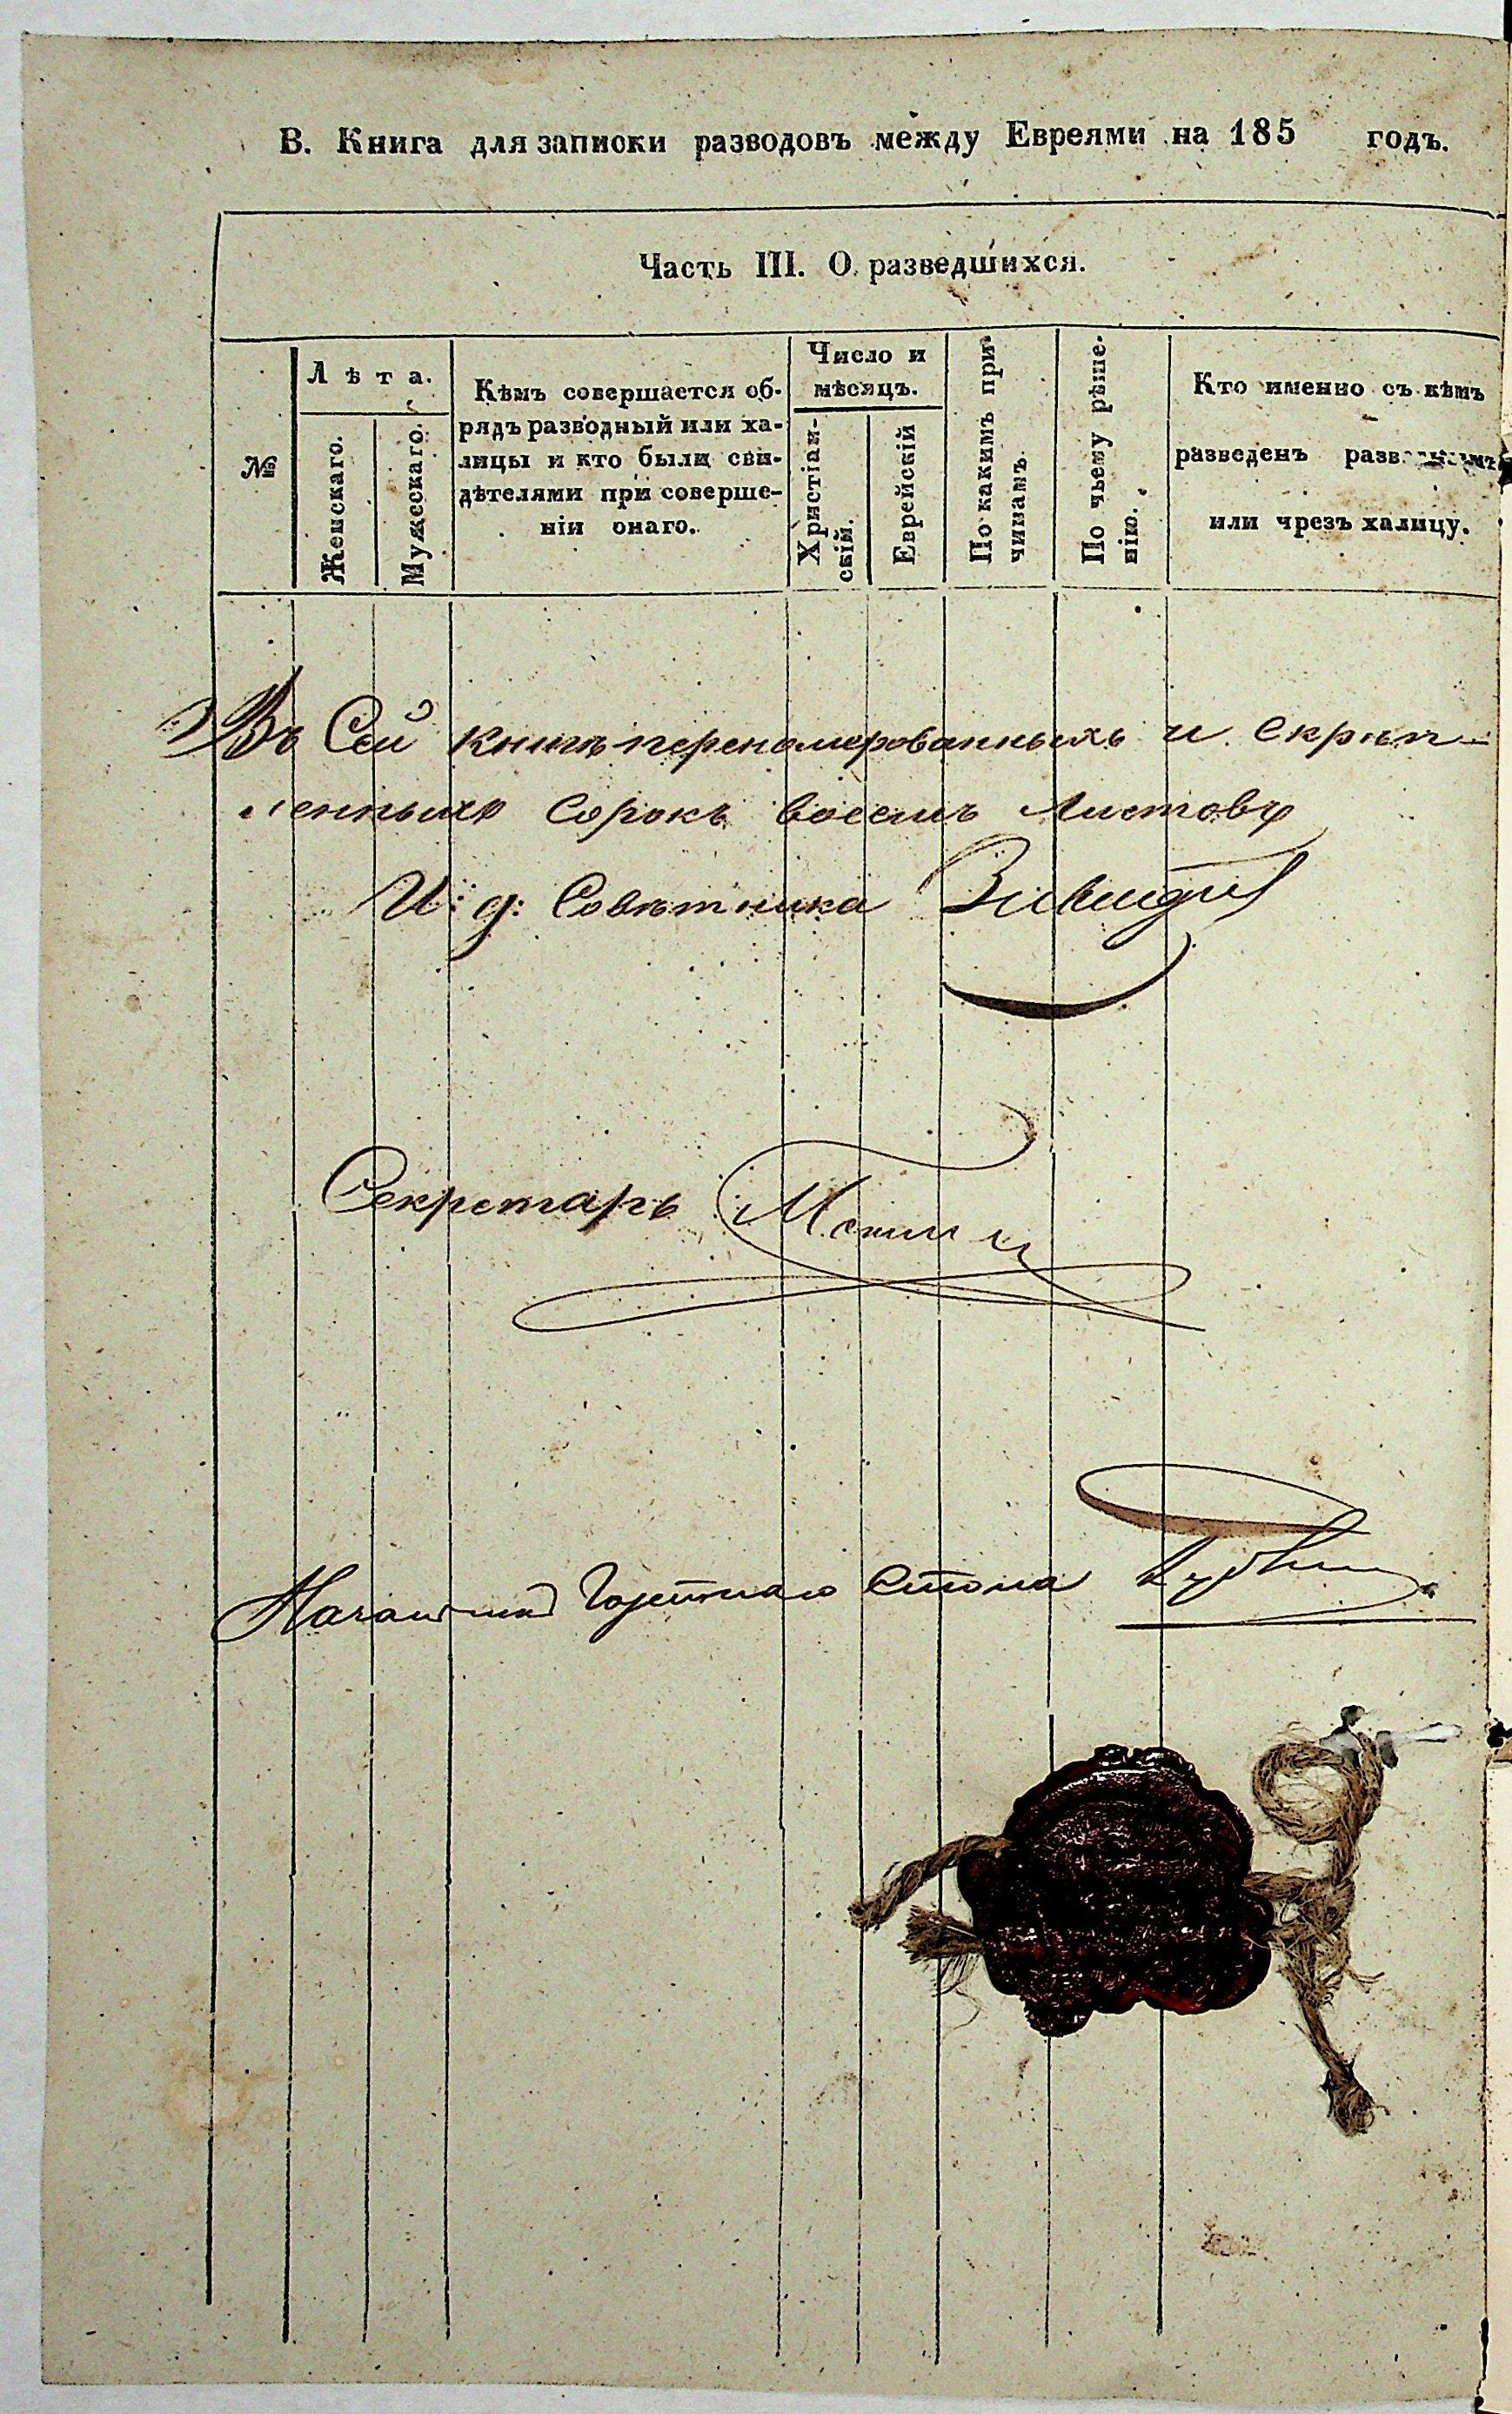 В. Книга для записки разводовъ между Евреями на 185 годъ.
Часть III. О разведшихся.
№
Лѣта.
Женскаго.
Мужескаго.
Кѣмъ совершается об-
рядъ разводный или ха-
лицы и кто были сви-
дѣтелями при соверше-
ніи онаго.
Число и
мѣсяцъ.
Христіан-
скій.
Еврейскій
По какимъ при-
чинамъ.
По чьему рѣше-
нію.
Кто именно съ кѣмъ
разведенъ
или чрезъ халицу.
Въ Сей книгѣ перенамерованныхъ и скрѣп-
ленныхъ сорокъ восемь листовъ
И: д: Совѣтника
Секретарь
Стола